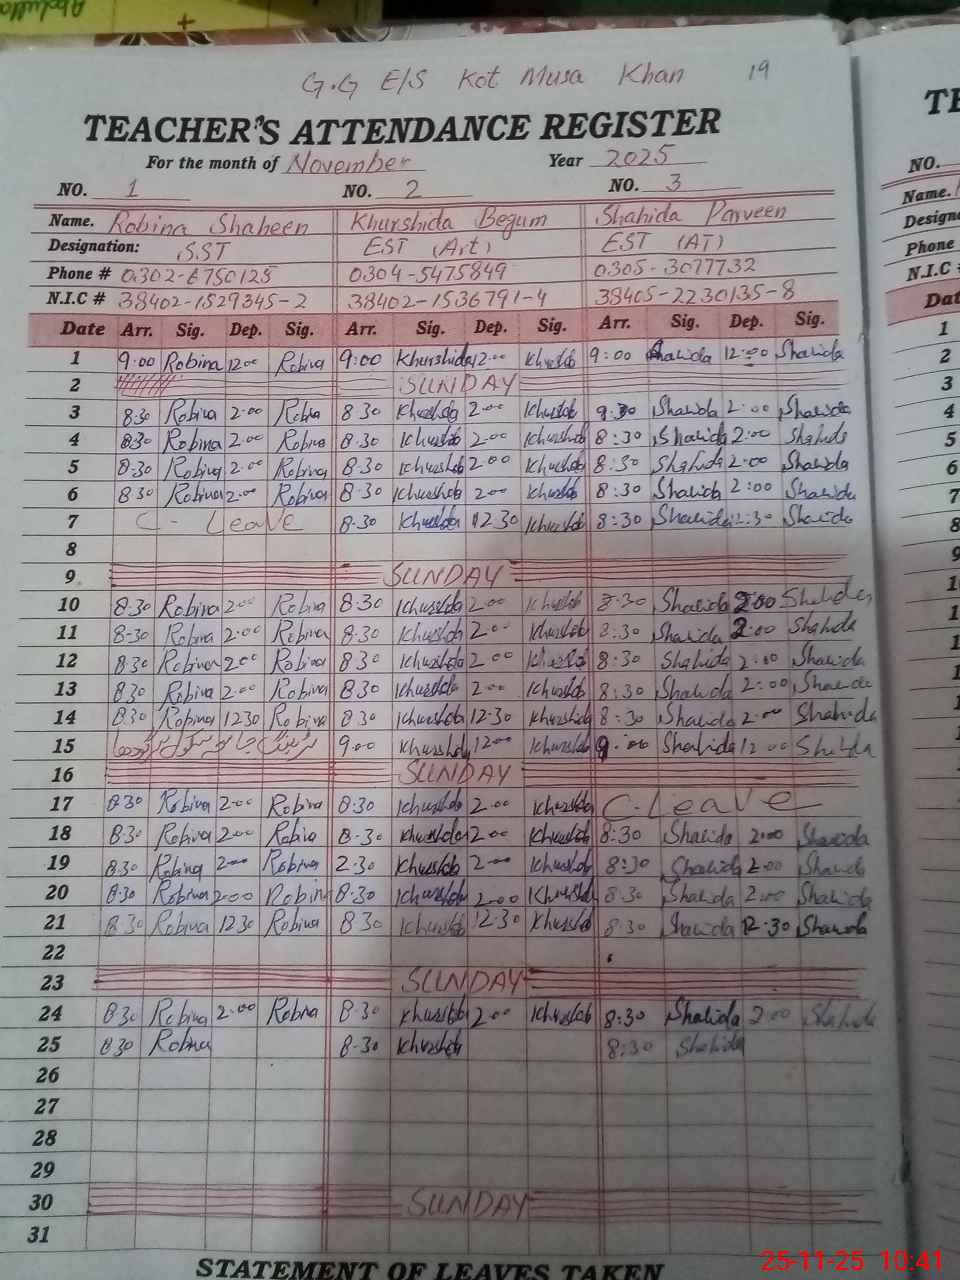 G.G E/S Kot Musa Khan 19
TEACHER'S ATTENDANCE REGISTER
For the month of November Year 2025
NO. 1 NO. 2 NO. 3
Name. Robina Shaheen Khurshida Begum Shahida Parveen
Designation: SST EST (Art) EST (AT)
Phone # 0302-6750125 0304-5475849 0305-3077732
N.I.C # 38402-1529345-2 38402-1536791-4 38405-2230135-8
Date Arr. Sig. Dep. Sig. Arr. Sig. Dep. Sig. Arr. Sig. Dep. Sig.
1 9:00 Robina 12:00 Robina 9:00 Khurshida 12:00 Khurshida 9:00 Shahida 12:00 Shahida
2 SUNDAY
3 8:30 Robina 2:00 Robina 8:30 Khurshida 2:00 Khurshida 9:30 Shahida 2:00 Shahida
4 8:30 Robina 2:00 Robina 8:30 Khurshida 2:00 Khurshida 8:30 Shahida 2:00 Shahida
5 8:30 Robina 2:00 Robina 8:30 Khurshida 2:00 Khurshida 8:30 Shahida 2:00 Shahida
6 8:30 Robina 2:00 Robina 8:30 Khurshida 2:00 Khurshida 8:30 Shahida 2:00 Shahida
7 C-Leave 8:30 Khurshida 12:30 Khurshida 8:30 Shahida 12:30 Shahida
8
9 SUNDAY
10 8:30 Robina 2:00 Robina 8:30 Khurshida 2:00 Khurshida 8:30 Shahida 2:00 Shahida
11 8:30 Robina 2:00 Robina 8:30 Khurshida 2:00 Khurshida 8:30 Shahida 2:00 Shahida
12 8:30 Robina 2:00 Robina 8:30 Khurshida 2:00 Khurshida 8:30 Shahida 2:00 Shahida
13 8:30 Robina 2:00 Robina 8:30 Khurshida 2:00 Khurshida 8:30 Shahida 2:00 Shahida
14 8:30 Robina 12:30 Robina 8:30 Khurshida 12:30 Khurshida 8:30 Shahida 2:00 Shahida
15 9:00 Khurshida 12:00 Khurshida 9:00 Shahida 12:00 Shahida
16 SUNDAY
17 8:30 Robina 2:00 Robina 8:30 Khurshida 2:00 Khurshida C-Leave
18 8:30 Robina 2:00 Robina 8:30 Khurshida 2:00 Khurshida 8:30 Shahida 2:00 Shahida
19 8:30 Robina 2:00 Robina 2:30 Khurshida 2:00 Khurshida 8:30 Shahida 2:00 Shahida
20 8:30 Robina 2:00 Robina 8:30 Khurshida 2:00 Khurshida 8:30 Shahida 2:00 Shahida
21 8:30 Robina 12:30 Robina 8:30 Khurshida 12:30 Khurshida 8:30 Shahida 12:30 Shahida
22
23 SUNDAY
24 8:30 Robina 2:00 Robina 8:30 Khurshida 2:00 Khurshida 8:30 Shahida 2:00 Shahida
25 8:30 Robina 8:30 Khurshida 8:30 Shahida
26
27
28
29
30 SUNDAY
31
STATEMENT OF LEAVES TAKEN
TE
NO.
Name.
Design
Phone
N.I.C #
Dat
1
2
3
4
5
6
7
8
9
25-11-25 10:41